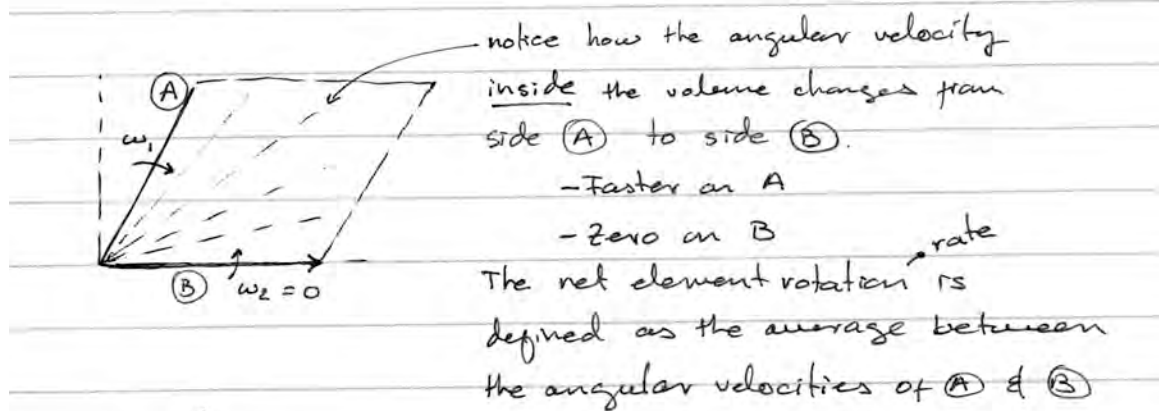 notice how the angular velocity
inside the volume changes from
side A to side B.
A
ω₁
B
ω₂ = 0
- Faster on A
- Zero on B
rate
The net element rotation is
defined as the average between
the angular velocities of A & B